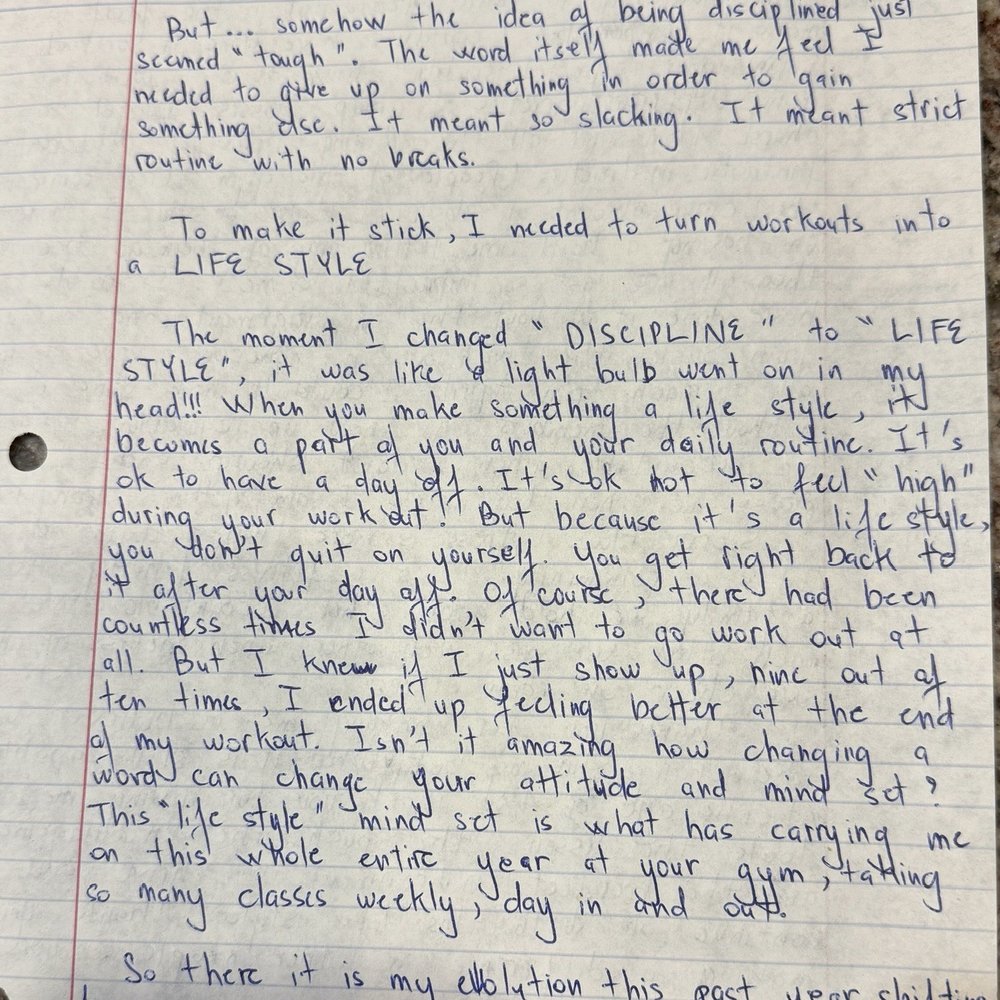 But... somehow the idea of being disciplined just
seemed "tough". The word itself made me feel I
needed to give up on something in order to gain
something else. It meant so slacking. It meant strict
routine with no breaks.
To make it stick, I needed to turn workouts into
a LIFE STYLE
The moment I changed "DISCIPLINE" to "LIFE
STYLE", it was like a light bulb went on in my
head!!! When you make something a life style, it
becomes a part of you and your daily routine. It's
ok to have a day off. It's ok not to feel "high"
during your work out! But because it's a life style,
you don't quit on yourself. You get right back to
it after your day off. Of course, there had been
countless times I didn't want to go work out at
all. But I knew if I just show up, nine out of
ten times, I ended up feeling better at the end
of my workout. Isn't it amazing how changing a
word can change your attitude and mind set?
This "life style" mind set is what has carrying me
on this whole entire year at your gym, taking
so many classes weekly, day in and out.
So there it is my evolution this past year